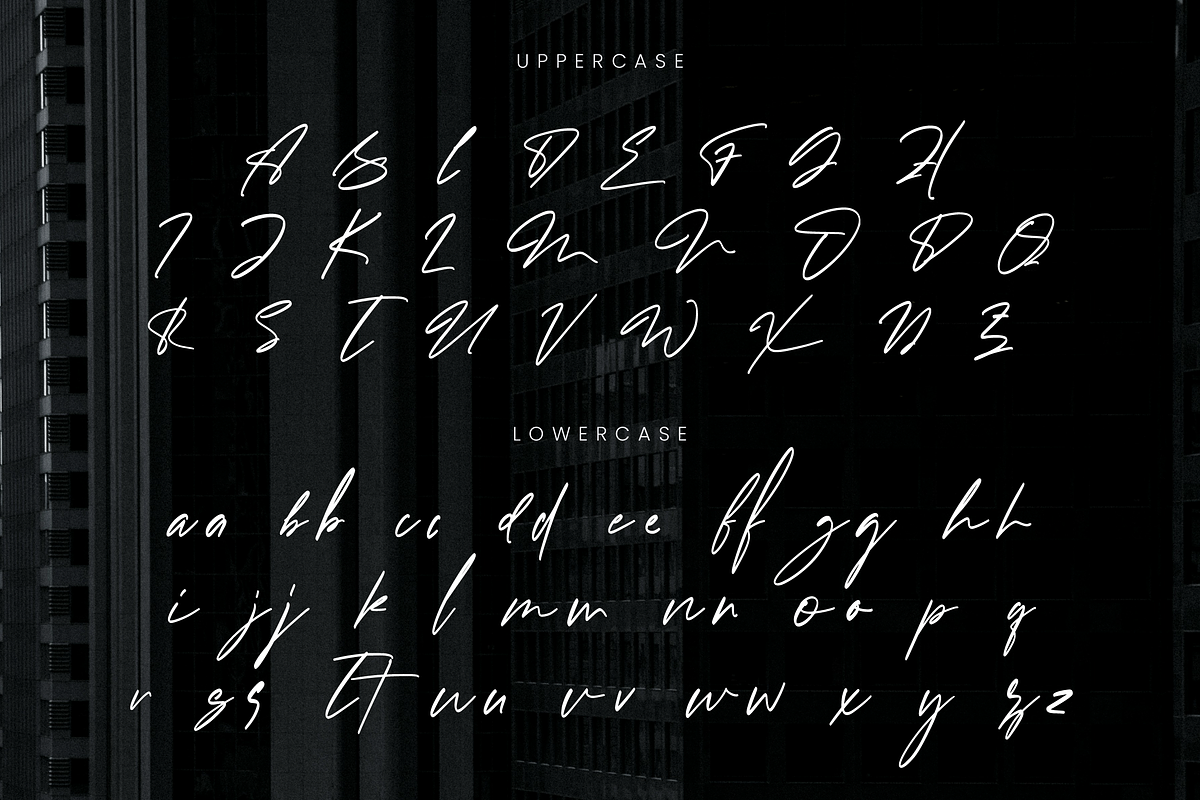 UPPERCASE
A B C D E F G H
I J K L M N O P Q
R S T U V W X Y Z
LOWERCASE
aa bb cc dd ee ff gg hh
i jj k l mm nn oo p q
r ss tt uu vv ww x y zz